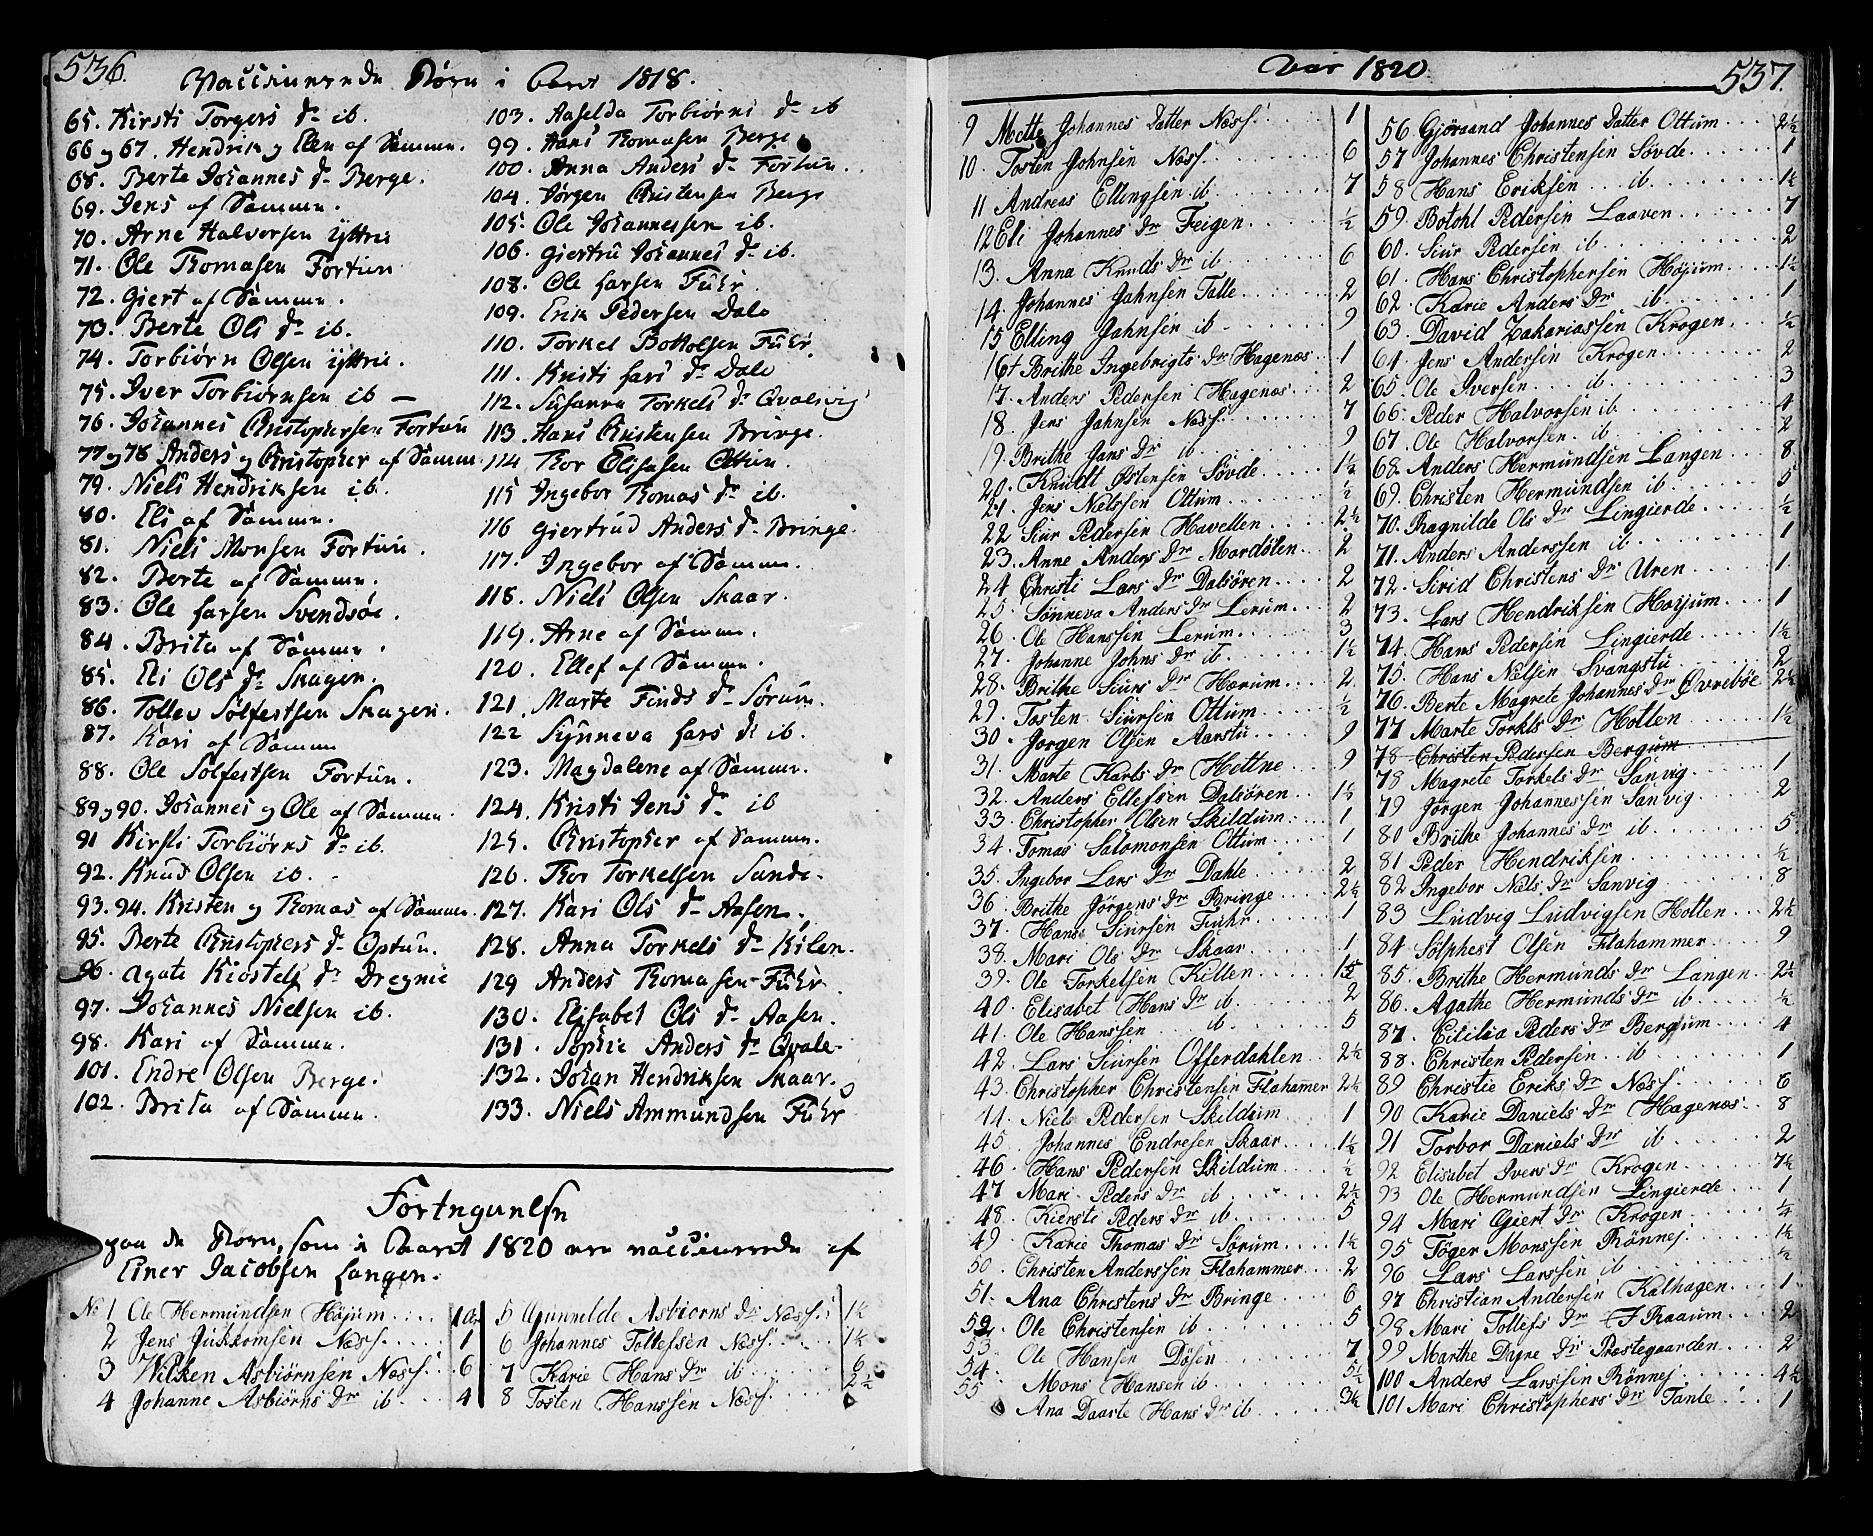 536.
Vaccinerede Børn i Aaret 1818.
65. Kirsti Torgers dr ib.
66 og 67. Hendrik og Elen af Samme.
68. Berte Johannes dr Berge.
69. Jens af Samme.
70. Arne Halvorsen Yttrie
71. Ole Thomasen Fortun
72. Giert af Samme.
73. Berte Ols dr ib.
74. Torbiørn Olsen Yttrie.
75. Iver Torbiørnsen ib —
76. Johannes Christophersen Fortun
77 og 78 Anders og Christopher af Samme.
79. Niels Hendriksen ib.
80. Eli af Samme.
81. Niels Monsen Fortun.
82. Berte af Samme.
83. Ole Larsen Svendsøe.
84. Brita af Samme.
85. Eli Ols dr Skagen.
86. Tollev Sølfestsen Skagen.
87. Kari af Samme
88. Ole Sølfestsen Fortun.
89 og 90. Johannes og Ole af Samme.
91 Kirsti Torbiørns dr ib.
92. Knud Olsen ib.
93. 94. Kristen og Thomas af Samme.
95. Berte Christophers dr Optun.
96. Agate Kiostels dr Dregnie
97. Johannes Nielsen ib.
98. Kari af Samme.
101. Endre Olsen Berge.
102. Brita af Samme.
103. Aaselda Torbiørns dr ib
99. Hans Thomasen Berge
100. Anna Anders dr Fortun.
104. Jørgen Christensen Berge
105. Ole Johannessen ib.
106. Giertru Johannes dr ib.
108. Ole Larsen Fuhr.
109. Erik Pedersen Dale
110. Torkel Bottolsen Fuhr.
111. Kristi Lars dr Dale
112. Susanna Torkels dr Qvalsvig
113. Hans Christensen Bringe.
114 Thor Elisasen Ottun.
115 Ingebor Thomas dr ib.
116 Giertrud Anders dr Bringe.
117. Ingebor af Samme.
118. Niels Olsen Skaar.
119. Arne af Samme.
120. Ellef af Samme.
121. Marte Finds dr Sørum.
122 Synneva Lars dr ib.
123. Magdalene af Samme.
124. Kristi Jens dr ib
125. Christopher af Samme.
126. Thor Torkelsen Sande.
127. Kari Ols dr Aasen.
128. Anna Torkels dr Kilen.
129 Anders Thomasen Fuhr
130. Elisabet Ols dr Aasen.
131. Sophie Anders dr Qvale.
132. Johan Hendriksen Skaar.
133. Niels Ammundsen Fuhr
Fortegnelse
paa de Børn, som i Aaret 1820 ere vaccinerede af
Einer Jacobsen Langen.
No 1 Ole Hermundsen Højum . . . . 10
2 Jens Jukkomsen Næss. . . . 1
3 Wilken Asbiørnsen Næss. 6
4 Johanne Asbiørns Dr ib. . . . 4
5 Gunnilde Asbiorns Dr Næss. 1½
6 Johannes Tollefsen Næss. . . 1½
7 Karie Hans Dr ib . . . . 6
8 Tosten Hanssen Næss. . . . 2½
Aar 1820
537.
9 Mette Johannes Datter Næss. 1
10. Tosten Johnsen Næss. . . . . 6
11 Andreas Ellingsen ib . . . . 7
12 Eli Johannes Dr Feigen . . . . ½
13. Anna Knuds Dr ib . . . . 6
14. Johannes Jahnsen Talle . . . . 2
15 Elling Jahnsen ib . . . . 9
16 + Brithe Ingebrigts Dr Hagenæs . . 1
17. Anders Pedersen Hagenæs . . . 2
18. Jens Jahnsen Næss . . . . 7
19. Brithe Jans Dr ib . . . . 9
20. Knudt Østensen Søvde . . . . 1½
21. Jens Nielssen Ottum . . . . ½
22 Siur Pedersen Havellen . . . . 2½
23. Anne Anders Dr Mordølen . . 2
24 Christi Lars Dr Dalsøren . . . 2
25. Sønneva Anders Dr Lerum . . . 2
26. Ole Hanssen Lerum . . . . 3
27. Johanne Johns Dr ib . . . . 1½
28. Brithe Siurs Dr Hærum . . . . 2
29. Tosten Siursen Ottum . . . . ½
30. Jorgen Olsen Aarstu . . . . 9
31. Marte Karls Dr Hottne . . . . 9
32. Anders Ellefsen Dalsøren . . 1½
33. Christopher Olsen Skildum . . . 1
34. Tomas Salomonsen Ottum . . . 1
35. Ingebor Lars Dr Dahle . . . . 2
36. Brithe Jörgens Dr Bringe . . . 2½
37. Hans Siursen Fuhr . . . . 1
38. Mari Ols Dr Skaar . . . . 1
39. Ole Torkelsen Killen . . . . 1½
40. Elisabet Hans Dr ib . . . . 2
41. Ole Hanssen . . . . ib . . . . 5
42. Lars Siursen Offerdahlen . . 2½
43. Christopher Christensen Flahamer 2½
44. Niels Pedersen Skildum . . . 1
45. Johannes Endresen Skaar . . . 1½
46. Hans Pedersen Skildum . . . . ½
47 Mari Peders Dr ib . . . . 2½
48. Kiersti Peders Dr ib . . . . 5
49. Karie Thomas Dr Sørum . . . . 1½
50. Christen Anderssen Flahammer . . . 2
51. Ana Christens Dr Bringe . . . . 6
52. Ole Christensen ib . . . . 5
53. Ole Hansen Døsen . . . . 7
54. Mons Hansen ib . . . . 5½
55 Ana Daarte Hans Dr ib . . . . 3½
56 Gjöraand Johannes Datter Ottum . . . 2½
57 Johannes Christensen Søvde . . . . 1
58 Hans Eriksen . . . ib . . . . 1½
59. Botohl Pedersen Laaven . . . . 7
60. Siur Pedersen ib . . . . 2
61. Hans Christophersen Højum . . . 1½
62. Karie Anders Dr ib . . . . 1
63. David Zakariassen Krogen . . . ½
64. Jens Andersen Krogen . . . . 2
65. Ole Iversen . . . . ib . . . . 3
66. Peder Halvorsen ib . . . . 4
67. Ole Halvorsen. ib . . . . 2
68. Anders Hermundsen Langen . . . 8
69. Christen Hermundsen ib . . . . 5
70. Ragnilde Ols Dr Lingierde . . . . ½
71. Anders Anderssen ib . . . . 1
72. Sirid Christens Dr Uren . . . . 1
73. Lars Hendriksen Højum . . . . 1
74. Hans Pedersen Lingierde . . . . 1½
75. Hans Nilsen Svangstu . . . . 2
76. Berte Magrete Johannes Dr Øvrebøe 2½
77 Marte Torkls Dr Hotten . . . . 1½
78 Christen Pedersen Bergum
78 Magrete Torkels Dr Sanvig . . . . 1
79 Jørgen Johannessen Sanvig . . . 2
80 Brithe Johannes Dr ib . . . . 5
81 Peder Hendriksen . . . . ½
82 Ingebor Niels Dr Sanvig . . . . 8
83 Ludvig Ludvigsen Hotten . . . 2½
84 Sölphest Olsen Flahammer . . . . 9
85. Brithe Hermunds Dr Langen . . 2½
86. Agathe Hermunds Dr ib . . . . ½
87. Cicilia Peders Dr Bergum . . . . 4
88. Christen Pedersen . . ib . . . . 1
89 Christie Eriks Dr Næss . . . . 6
90 Karie Daniels Dr Hagenæs . . 8
91 Torbor Daniels Dr ib . . . . 2
92 Elisabet Ivers Dr Krogen . . . . 7½
93 Ole Hermundsen Lingierde . . . . 1
94 Mari Giert Dr Krogen . . . . ¼
95 Töger Monssen Rönnej . . . . 1½
96 Lars Larssen ib . . . . ½
97 Christian Andersen Kalhagen . . . 1
98 Mari Tollefs Dr Raaum . . . 2
99 Marthe Dyre Dr Præstegaarden . . . 2
100 Anders Larssen Rönnej . . . . 4½
101 Mari Christophers Dr Tanle . . . 1